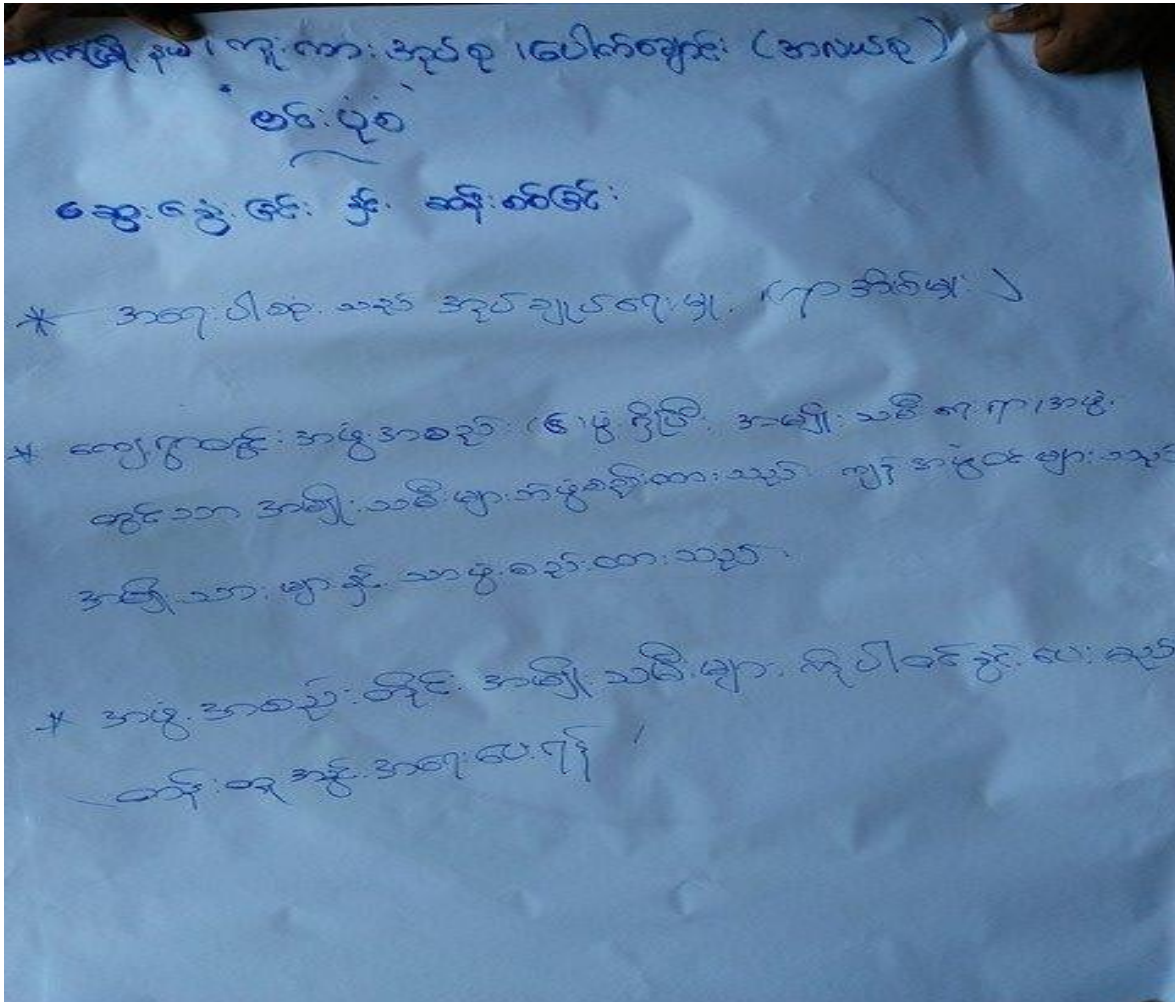 မြို့နယ်၊ ကူးကား အုပ်စု ၊ပေါက်ချောင်း (အလယ်စု)
"ဗင်းပုံစံ"
ဆွေးနွေးခြင်း နှင့် ဆန်းစစ်ခြင်း
* အရေးပါဆုံးသည် အုပ်ချုပ်ရေးမှူး (ရာအိမ်မှုး)
* ကျေးရွာတွင်း အဖွဲ့အစည်း (၆)ဖွဲ့ရှိပြီး အမျိုးသမီးရေးရာအဖွဲ့
တွင်သာ အမျိုးသမီးများဘဲဖွဲ့စည်းထားသည်။ ကျန်အဖွဲ့ဝင်များသည်
အမျိုးသားများနှင့် သာဖွဲ့စည်းထားသည်။
* အဖွဲ့အစည်းတိုင်း အမျိုးသမီးများ ကိုပါဝင်ခွင့်ပေး မည်
တန်းတူအခွင့်အရေးပေးရန်